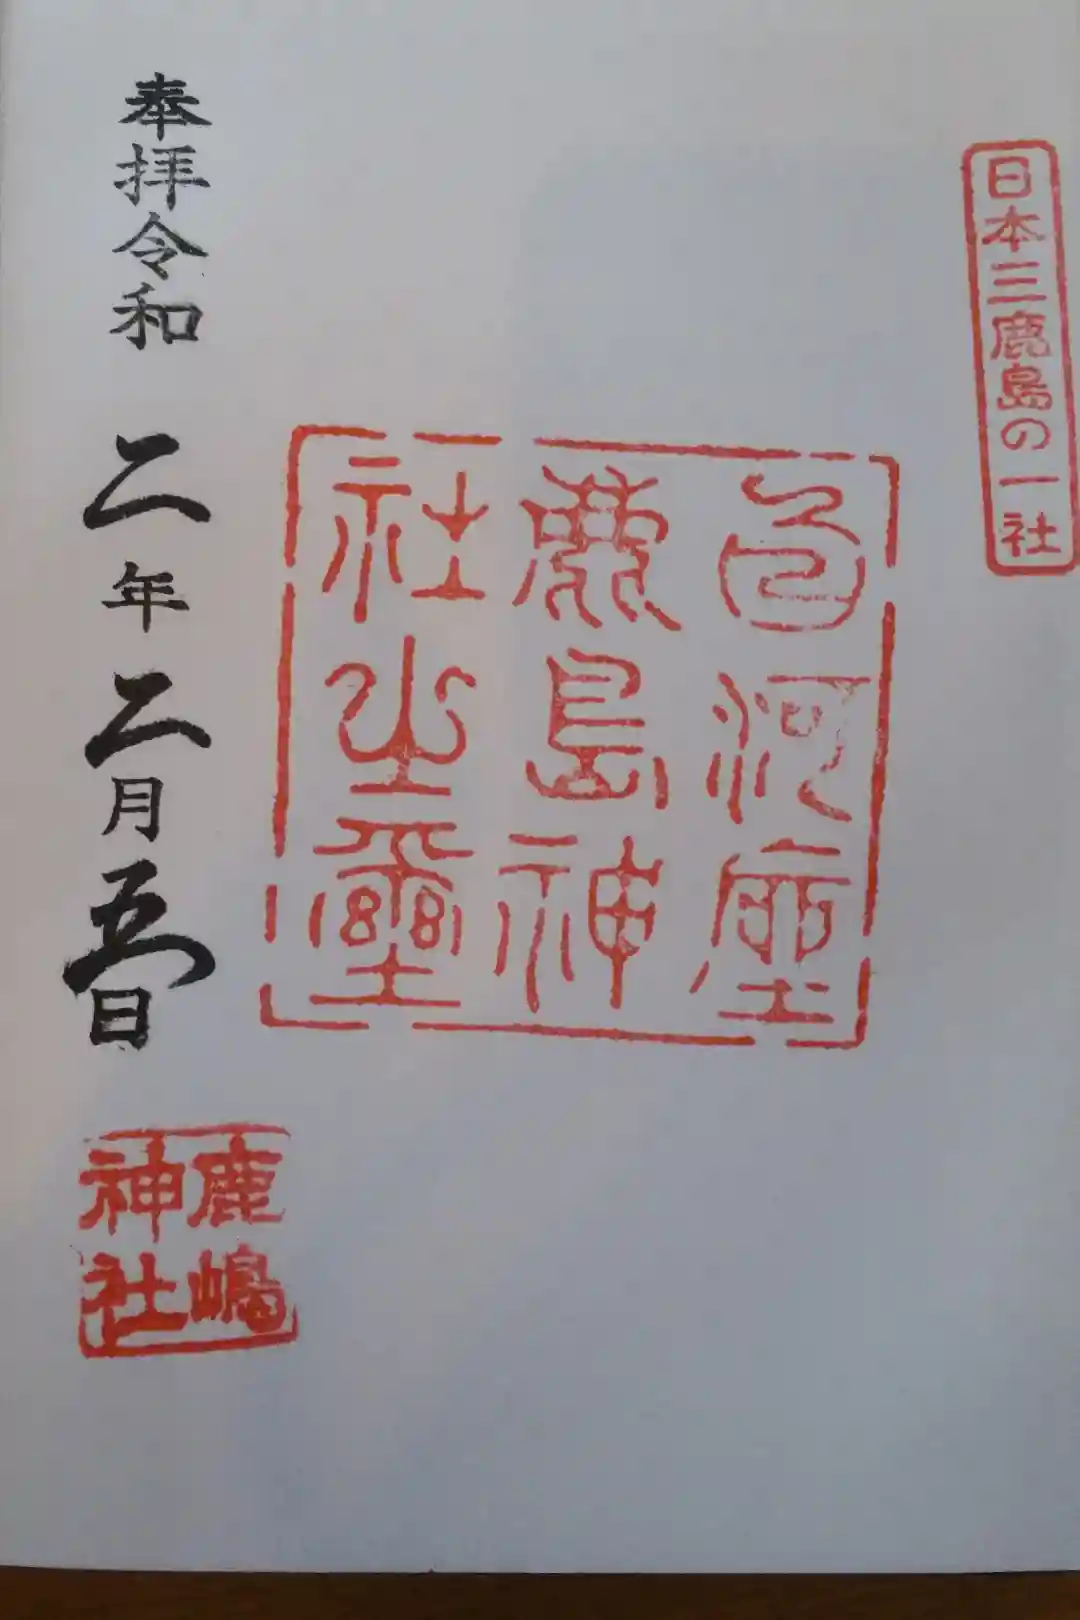 日本三鹿島の一社
色河座
鹿島神
社之璽
奉拝令和二年二月五日
鹿嶋
神社